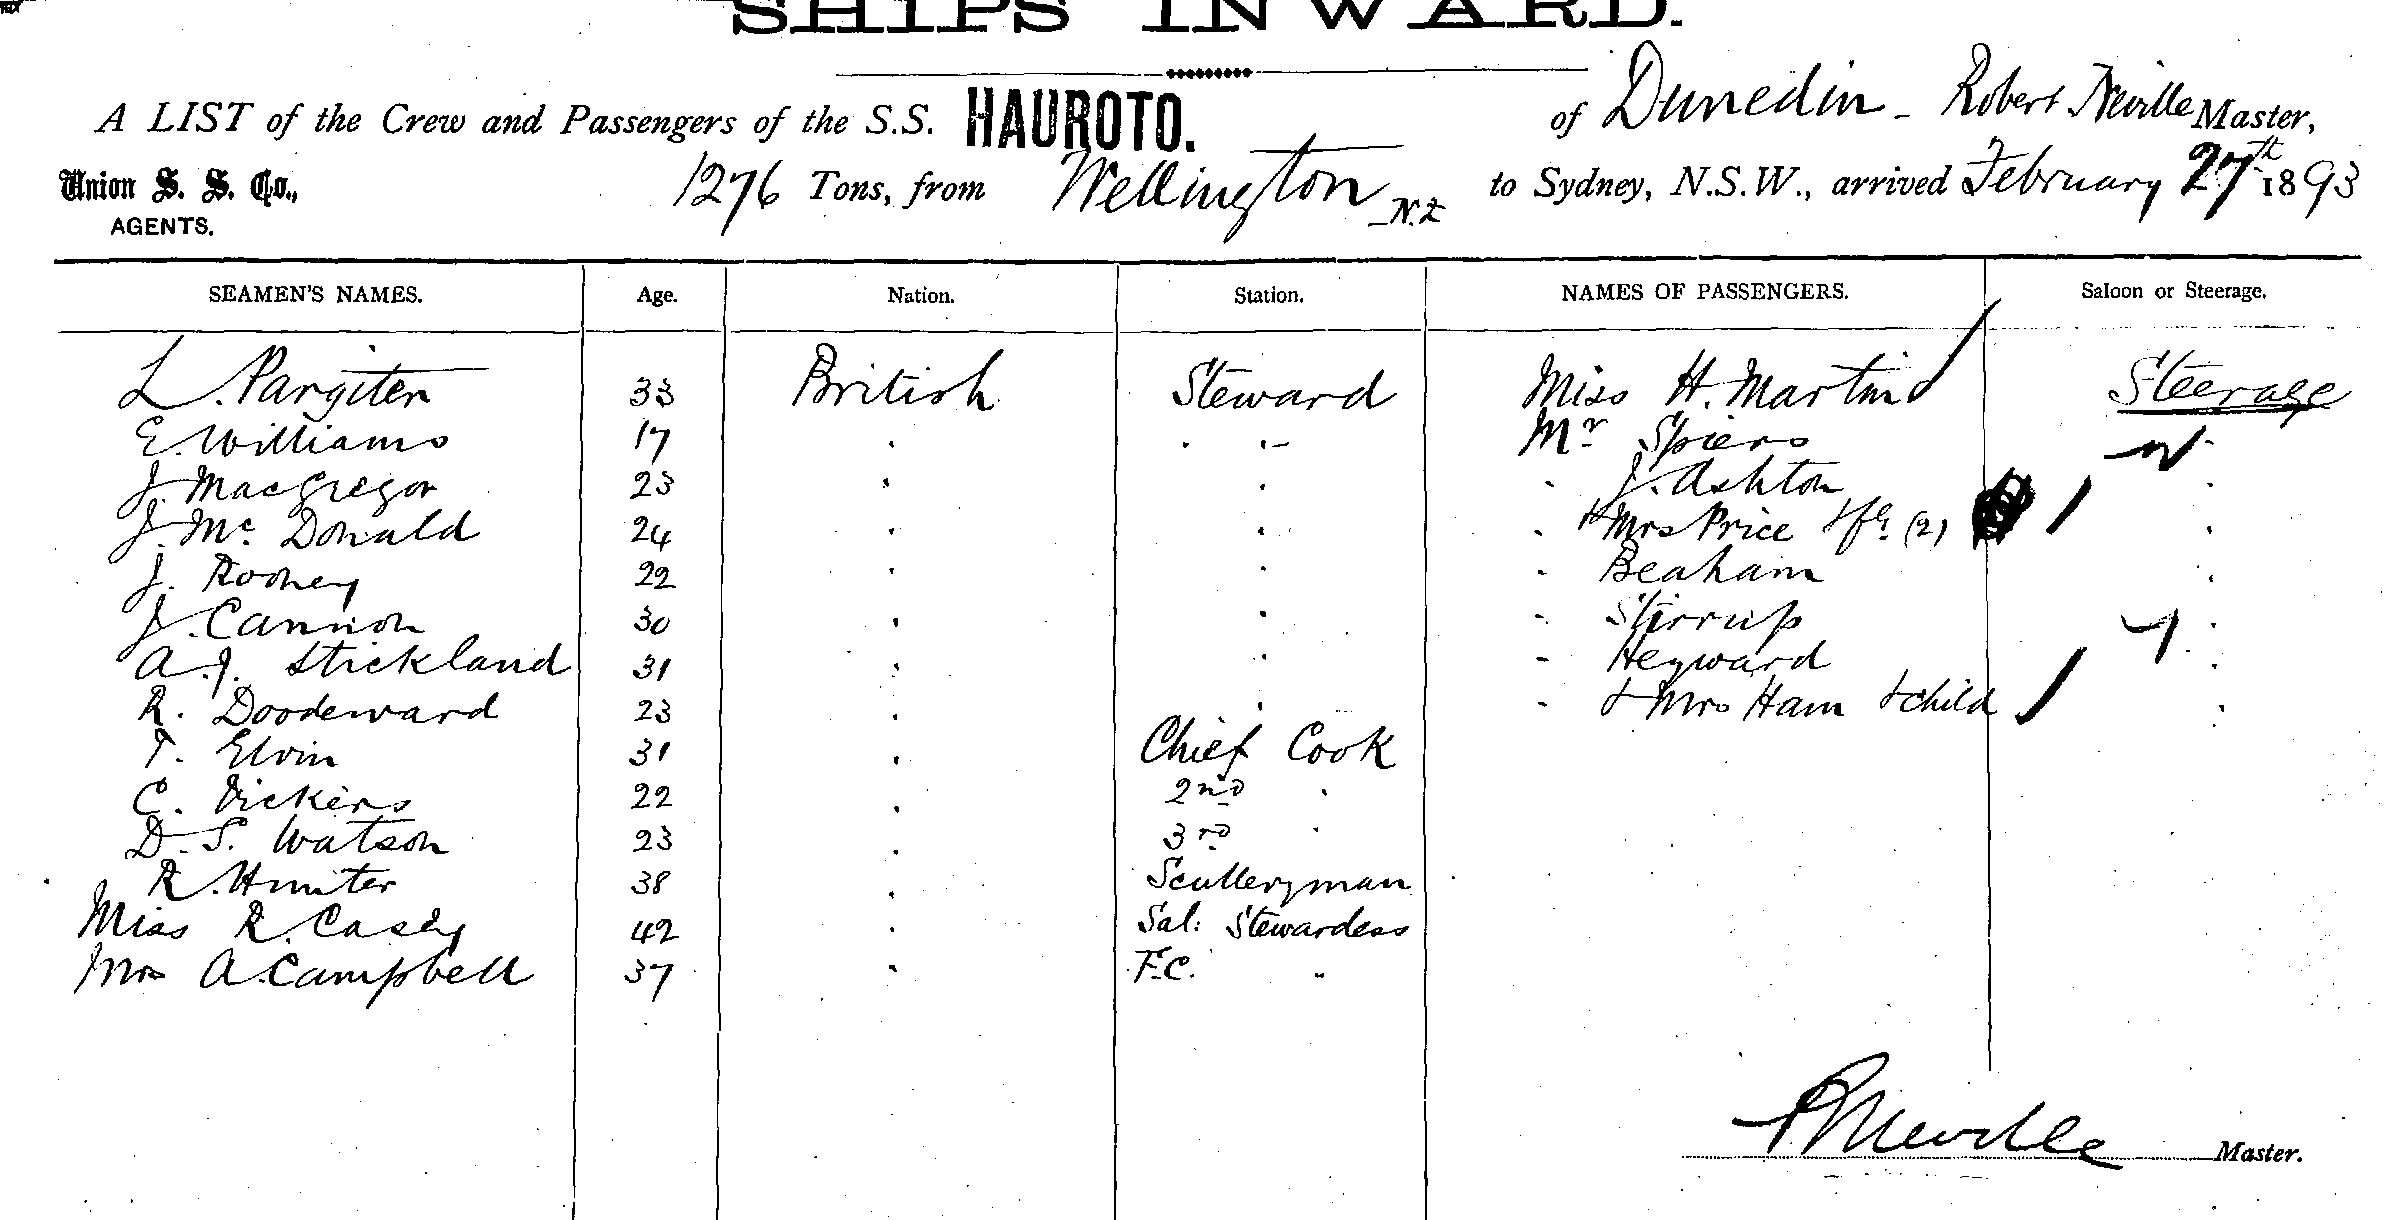 SHIPS INWARD.
A LIST of the Crew and Passengers of the S.S. HAUROTO. of Dunedin - Robert Neville Master,
Union S. S. Co., 1276 Tons, from Wellington N.Z to Sydney, N.S.W., arrived February 27th 1893
AGENTS.
SEAMEN'S NAMES. Age. Nation. Station. NAMES OF PASSENGERS. Saloon or Steerage.
L. Pargiter 33 British Steward Miss H. Martin Steerage
E. Williams 17 " " " Mr Spiers "
J. MacGregor 23 " " " J. Ashton "
J. Mc Donald 24 " " " & Mrs Price (2) "
J. Rooney 22 " " " Beaham "
J. Cannon 30 " " " Stirrup "
A. J. Strickland 31 " " " Heyward "
R. Doodeward 23 " " " & Mrs Ham & child "
T. Elvin 31 " Chief Cook
C. Vickers 22 " 2nd "
D. S. Watson 23 " 3rd "
R. Hunter 38 " Sculleryman
Miss R. Casey 42 " Sal: Stewardess
Mrs A. Campbell 37 " F.C. "
R Neville Master.